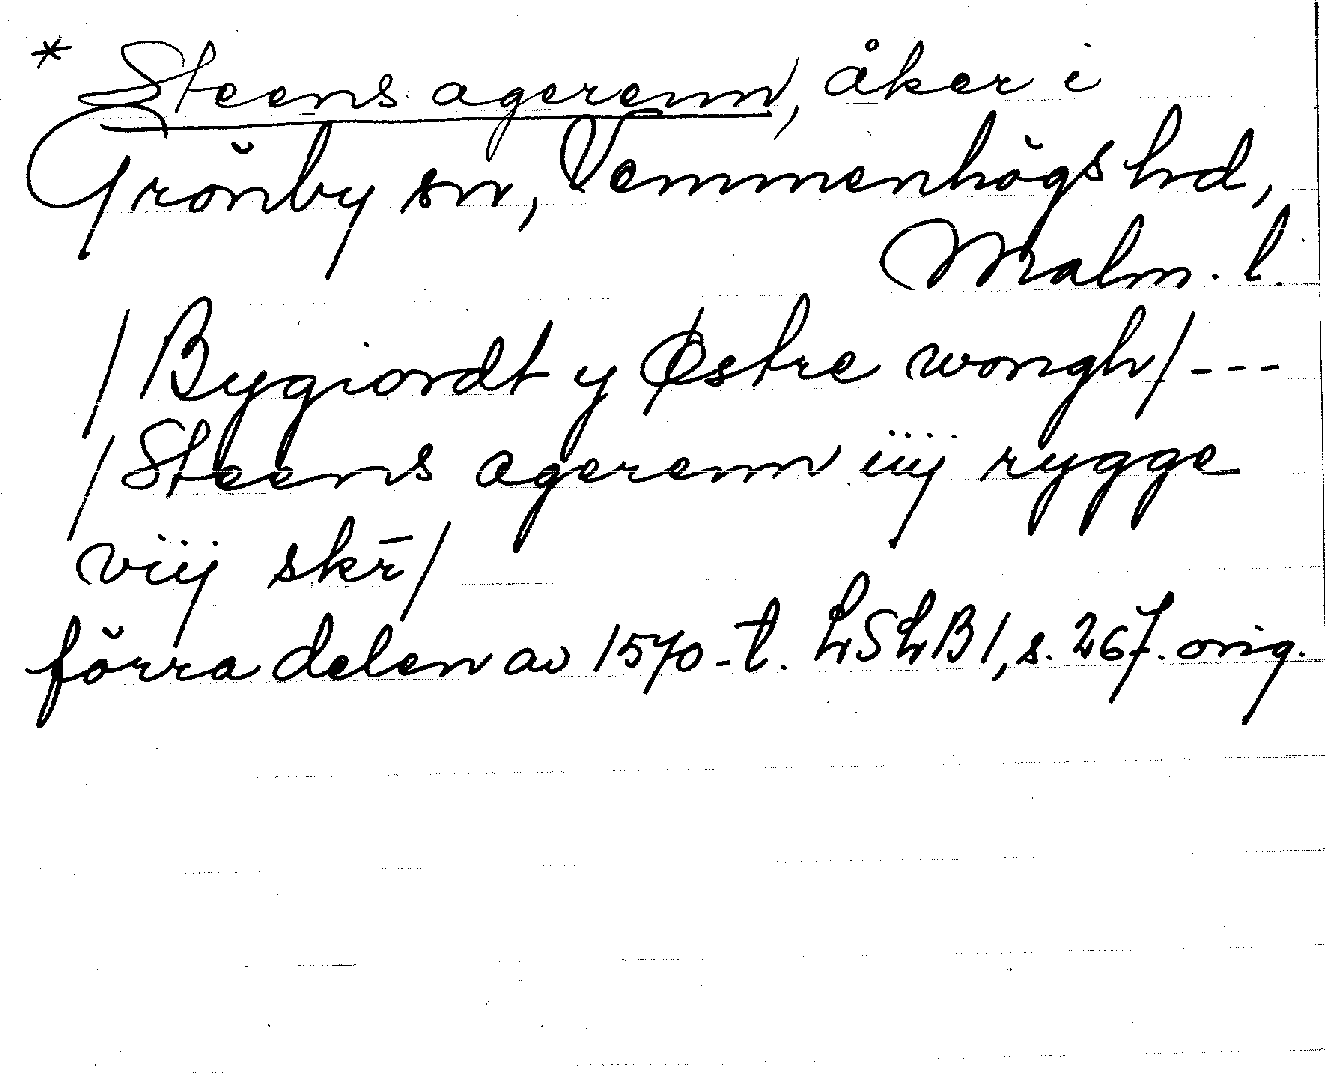 * Steens agerenn, åker i
Grönby sn, Vemmenhögs hd,
Malm. l.
/Bygiordt y Østre wongh/---
/Steens agerenn iiij rygge
viij skr̄/
förra delen av 1570-t. LSLB 1, s. 267. orig.